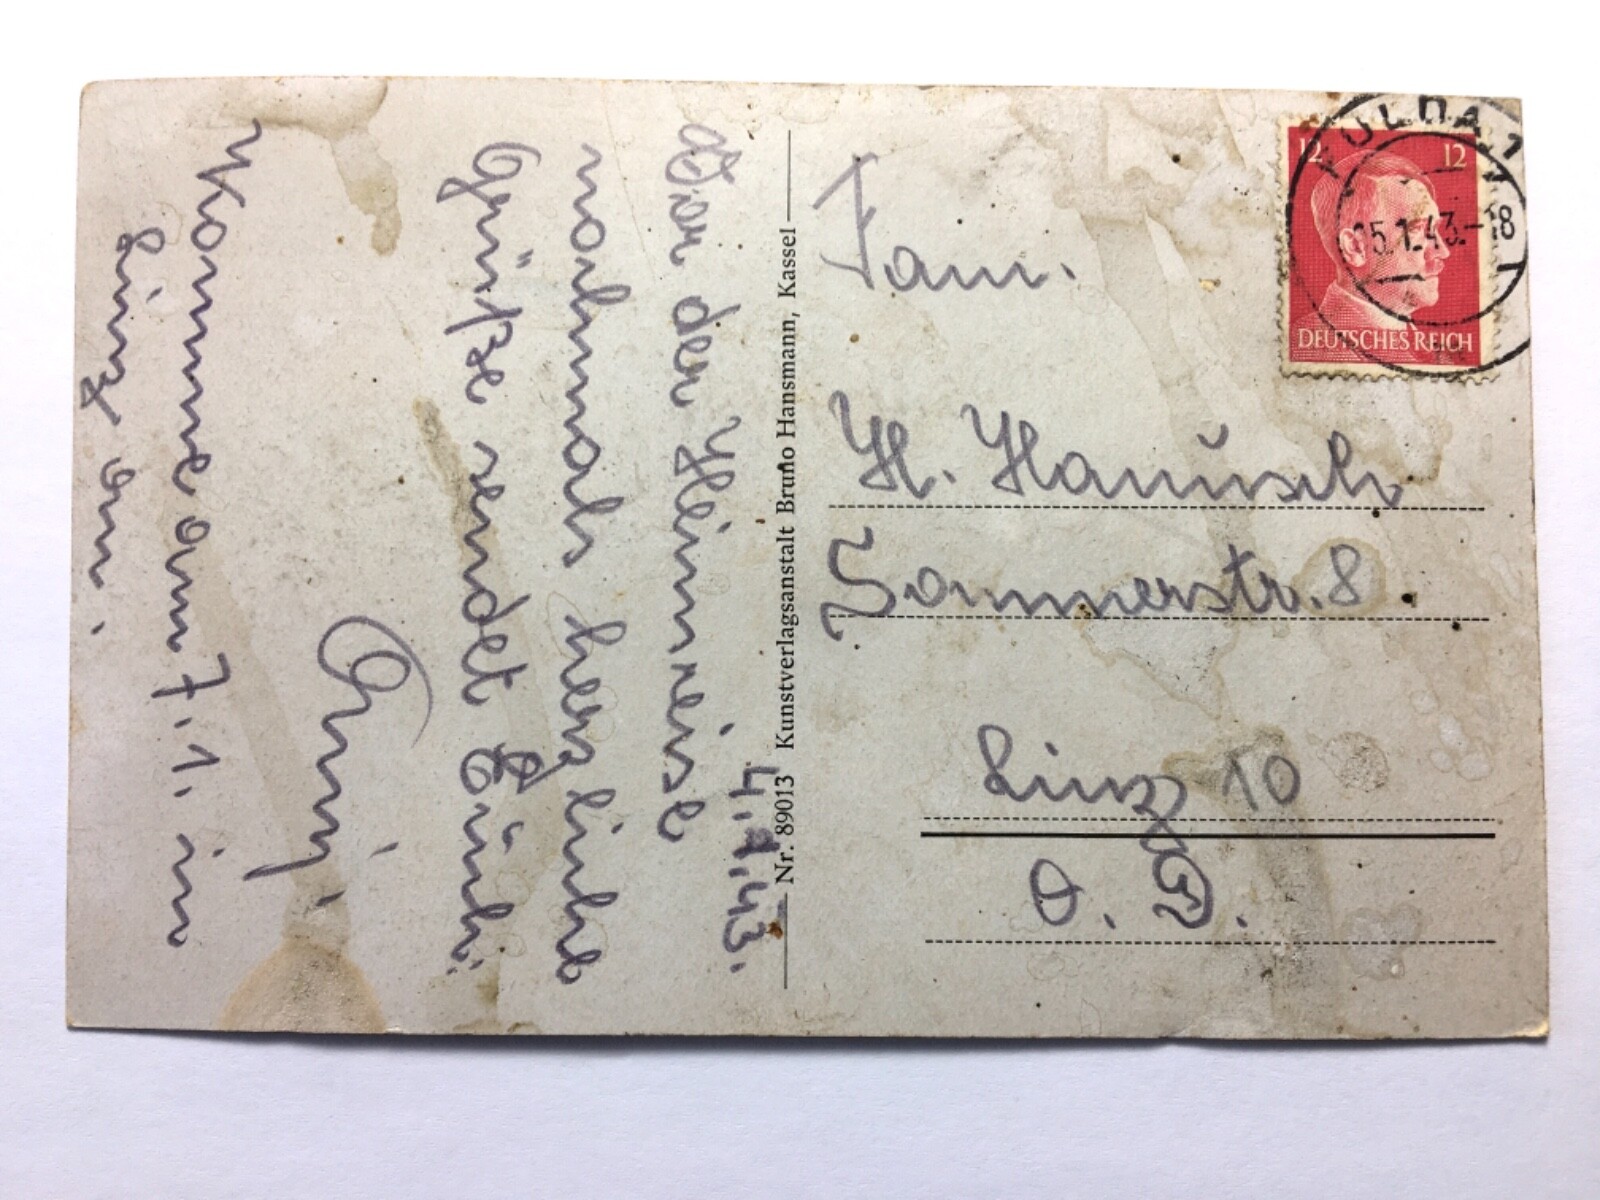 4.1.43.
Von der Heimreise
nochmals herzliche
Grüße sendet Euch
Komme am 7.1. in
Linz an.
Nr. 89013 Kunstverlagsanstalt Bruno Hansmann, Kassel
12 12
DEUTSCHES REICH
FULDA 1
5.1.43.-18
Fam.
H. Hanusch
Sommerstr. 8
Linz 10
O. D.